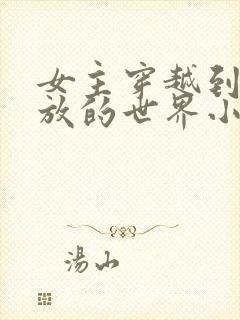 女主穿越到
放的世界小
湯山